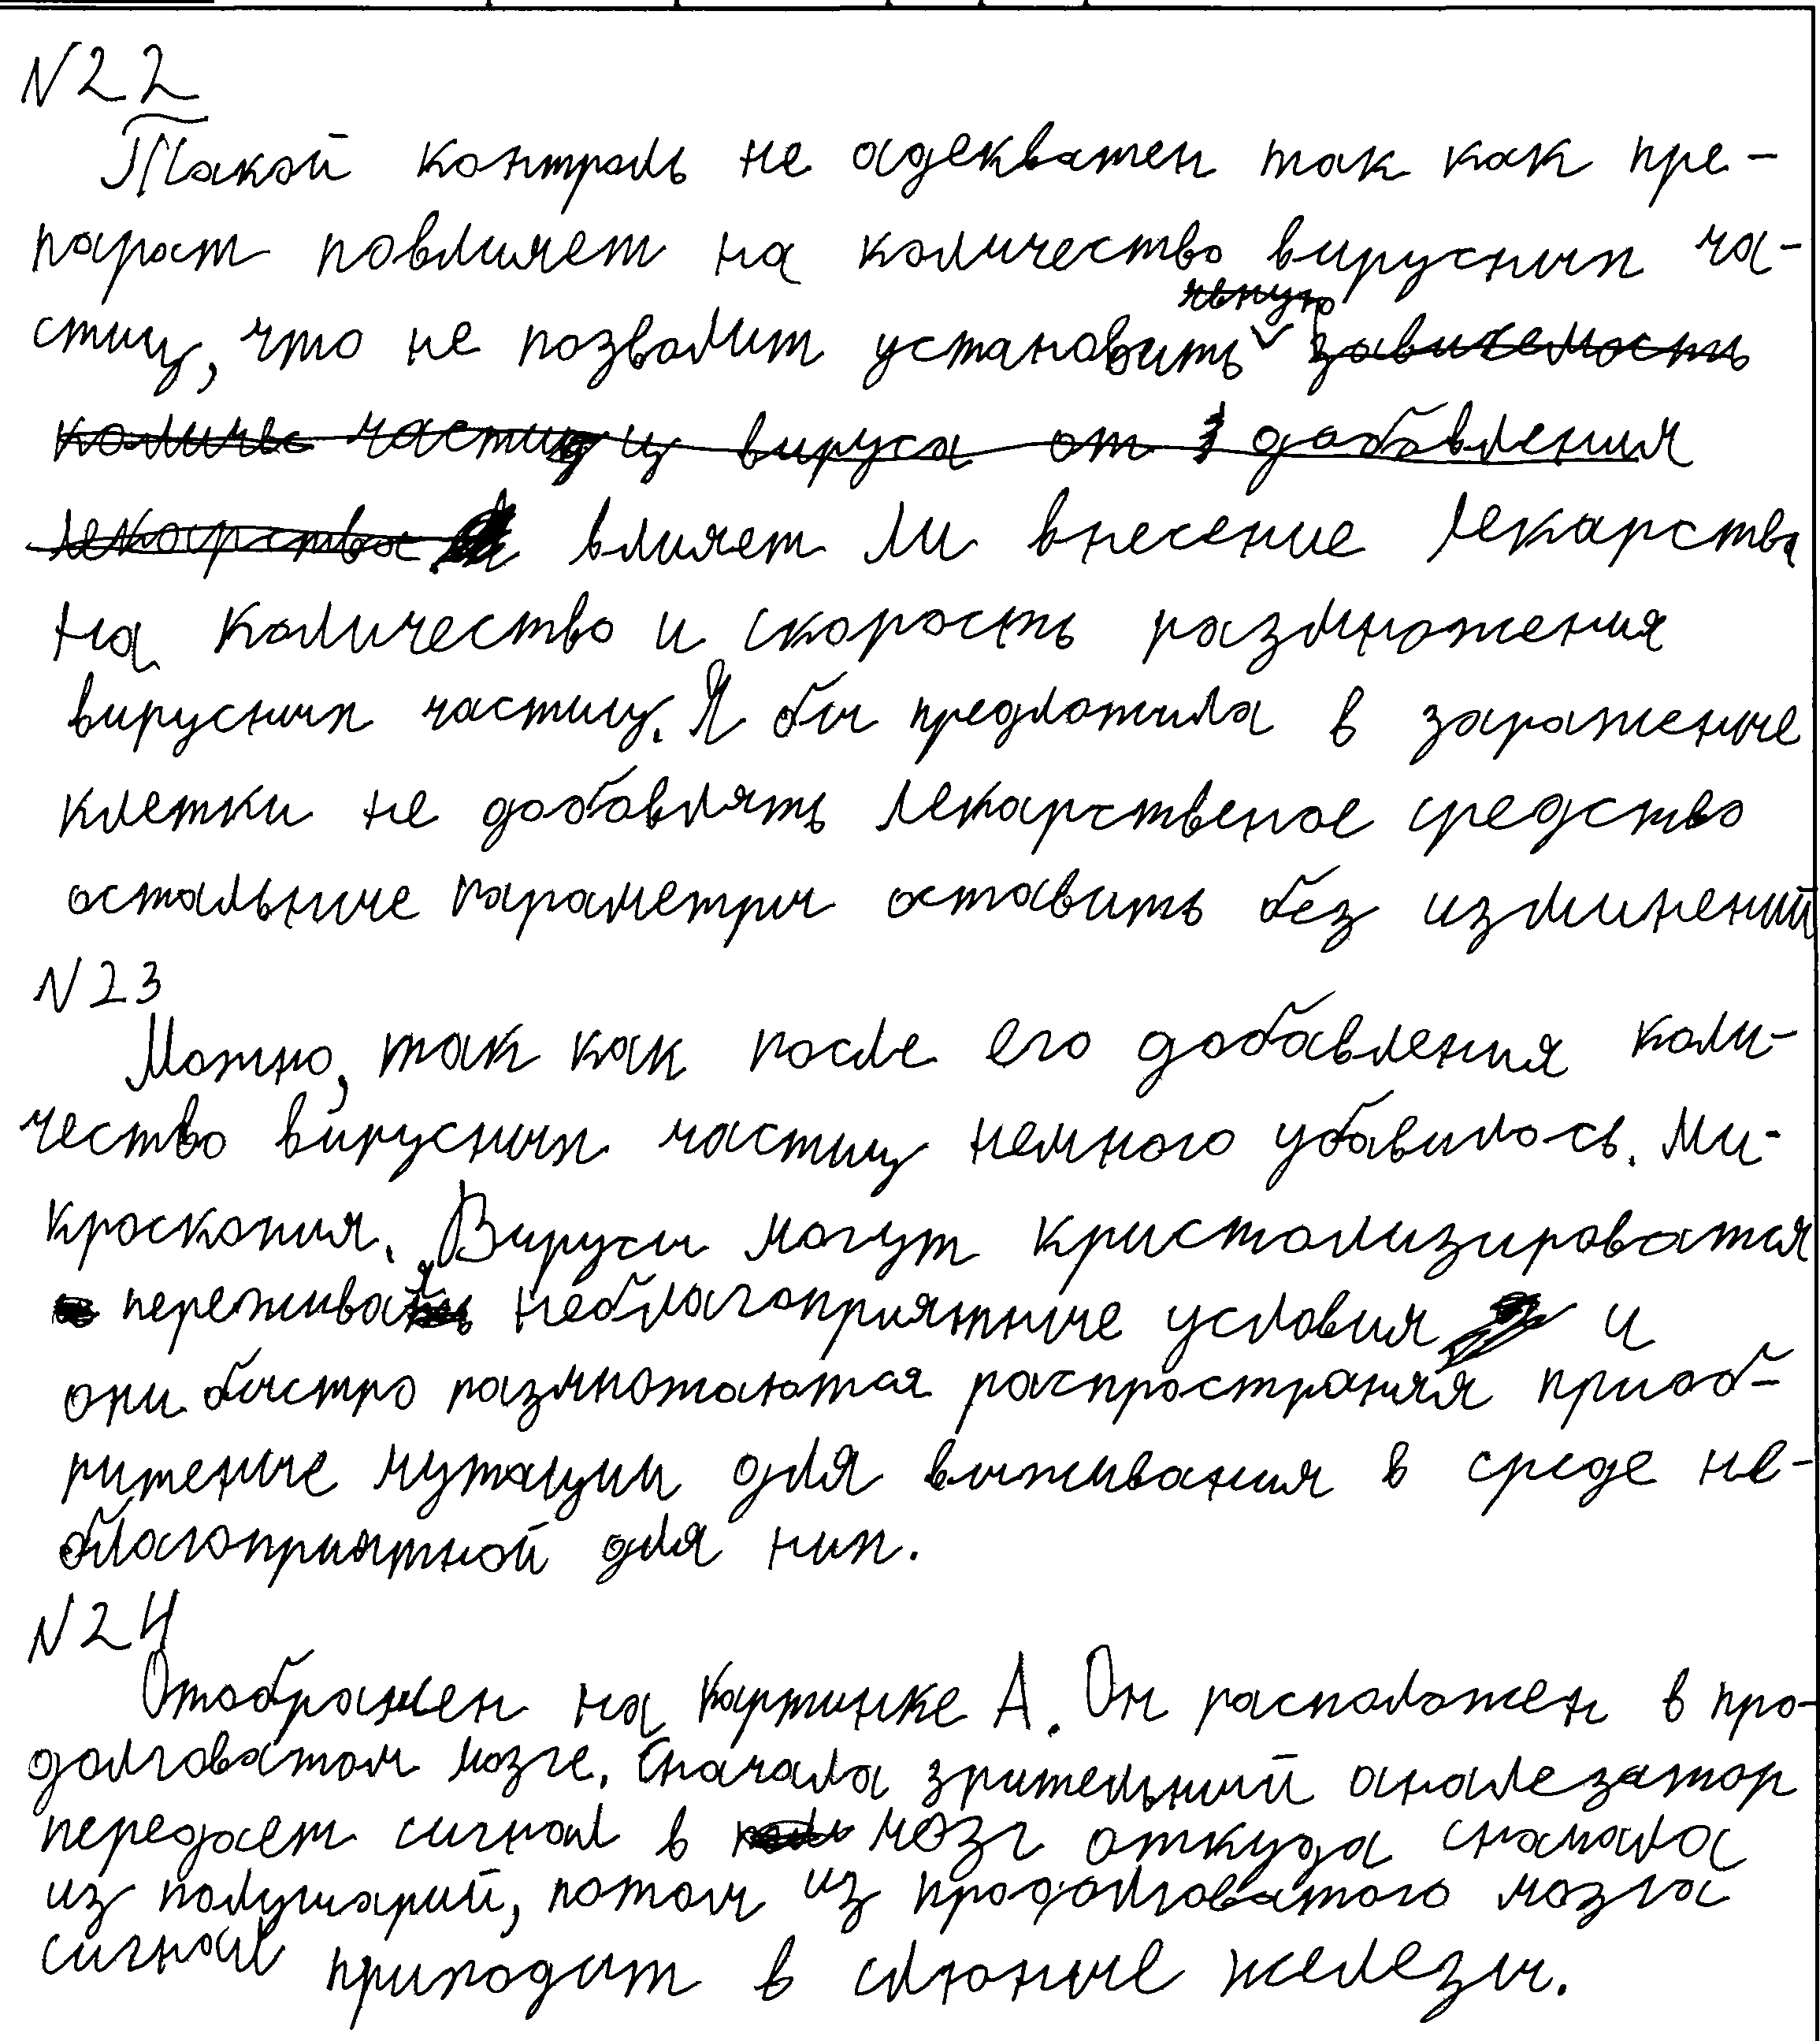 N22
Такой контроль не адекватен так как пре-
парат повлияет на количество вирусных ча-
стиц, что не позволит установить явную зависемость
количес частиц ц вируса от добавления
лекарства влияет ли внесение лекарства
на количество и скорость размножения
вирусных частиц. Я бы предложила в зараженые
клетки не добавлять лекарственое средство
остальные параметры оставить без изминений
N23
Можно, так как после его добавления коли-
чество вирусных частиц немного убавилось. Ми-
кроскопия. Вирусы могут кристализироватся
переживая неблагоприятные условия и
они быстро размножаются распространяя приоб-
ритеные мутации для выживания в среде не-
благоприятной для них.
N24
Отображен на картинке А. Он расположен в про-
долговатом мозге. Сначала зрительный анализатор
передает сигнал в мозг откуда сначала
из полушарий, потом из продолговатого мозга
сигнал приходит в слюные железы.